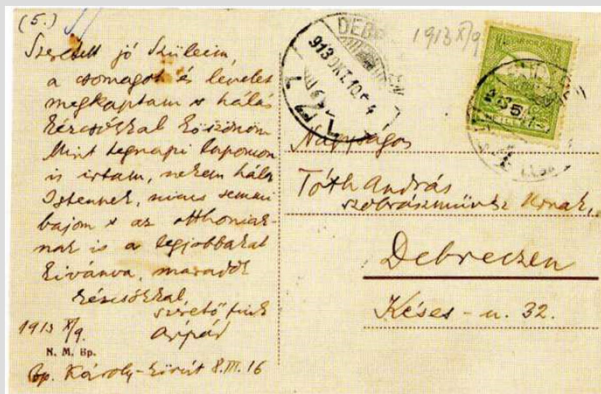 (5.)
Szeretett jó Szüleim,
a csomagot és levelet
megkaptam s hálás
kézcsókkal köszönöm
Mint tegnapi lapomon
is irtam, nekem hála
Istennek, nincs semmi
bajom s az otthoniak-
nak is a legjobbakat
kivánva, maradok
kézcsókkal
szerető fiuk
Árpád
1913 X/9.
N. M. Bp.
Bp. Károly-körút 8. III. 16
DEB
913 OKT. 10
1913 X/9
Nagyságos
Tóth András
szobrászművész Urnak,
Debreczen
Késes-u. 32.